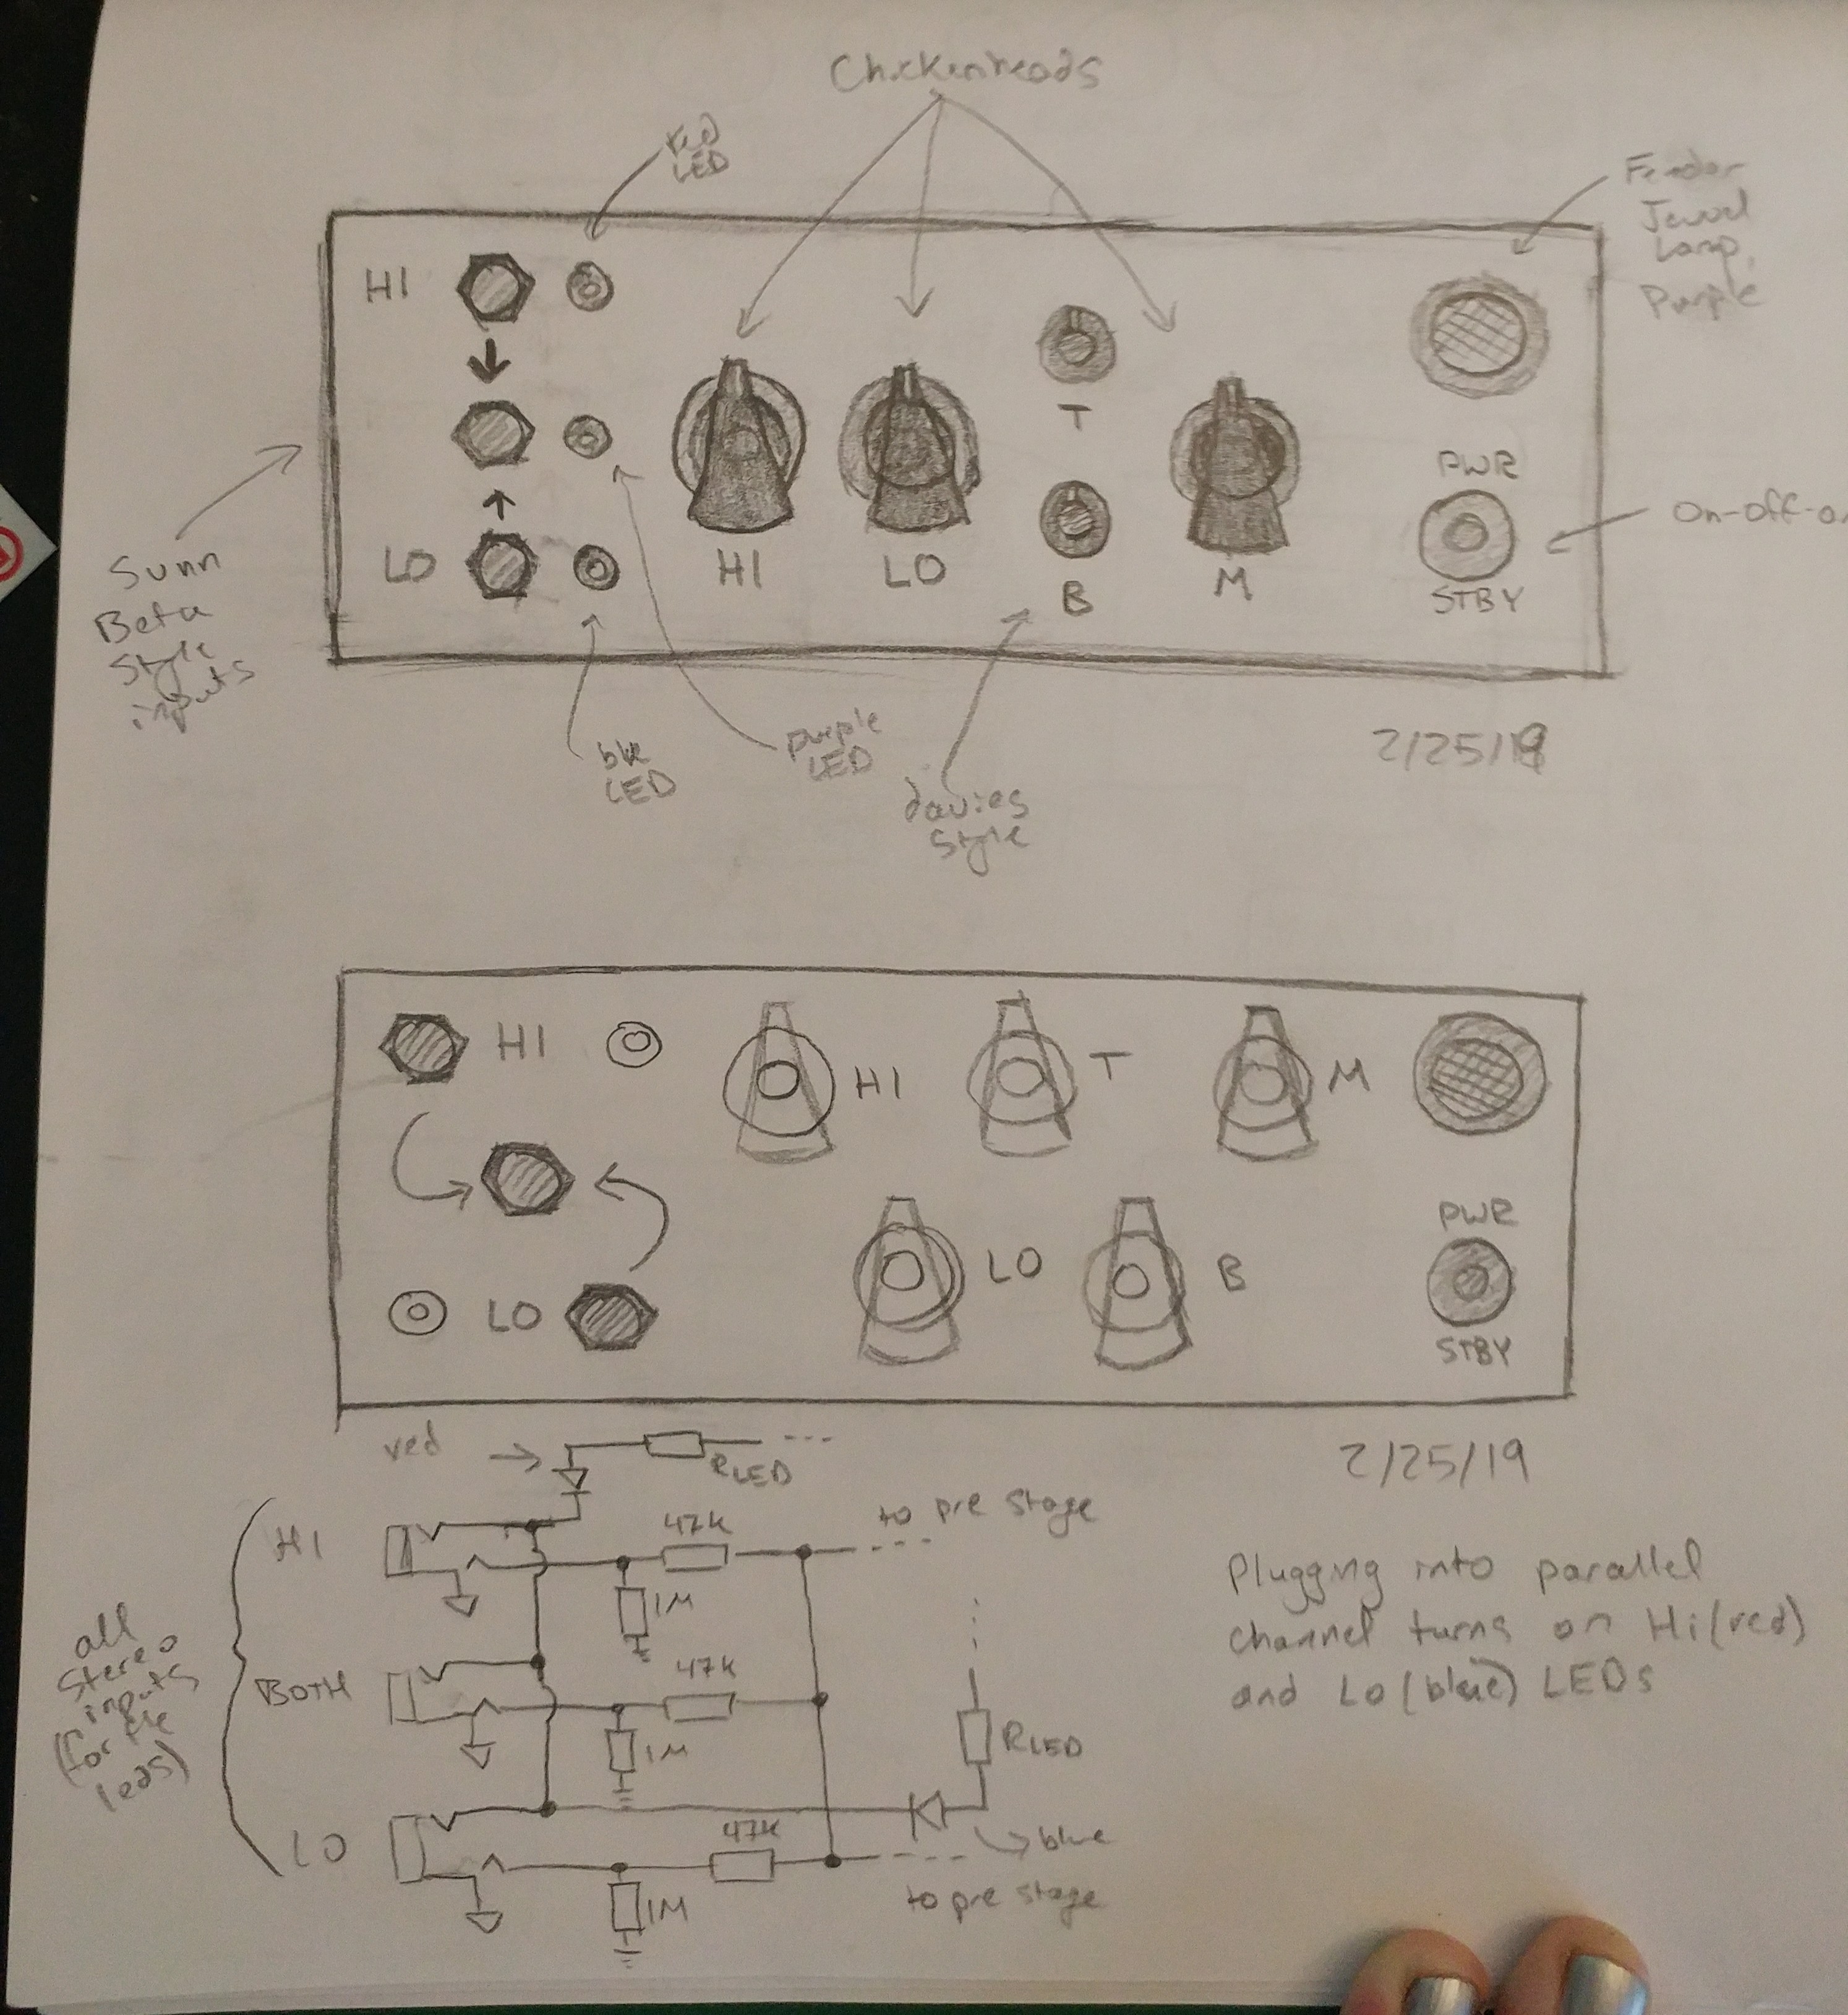 Chickenheads
red
LED
Fender
Jewel
Lamp,
Purple
HI
T
PWR
On-off-o
LO
HI
LO
B
M
STBY
Sunn
Beta
Style
inputs
blue
LED
purple
LED
davies
Style
2/25/19
HI
HI
T
M
LO
LO
B
PWR
STBY
2/25/19
red
RLED
HI
47K
to pre stage
1M
all
stereo
inputs
(for the
leds)
BOTH
47K
1M
RLED
LO
47K
blue
1M
to pre stage
Plugging into parallel
channel turns on Hi(red)
and Lo(blue) LEDs